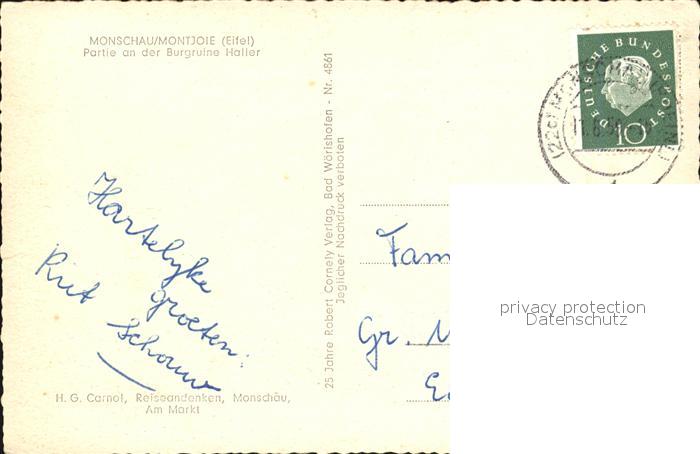 MONSCHAU/MONTJOIE (Eifel)
Partie an der Burgruine Haller
Hartelyke
groeten:
Riet Schouw
H. G. Carnol, Reiseandenken, Monschau,
Am Markt
25 Jahre Robert Cornely Verlag, Bad Wörishofen - Nr. 4861
Jeglicher Nachdruck verboten
DEUTSCHE BUNDESPOST
10
(22c)
Fam
Gr.
privacy protection
Datenschutz